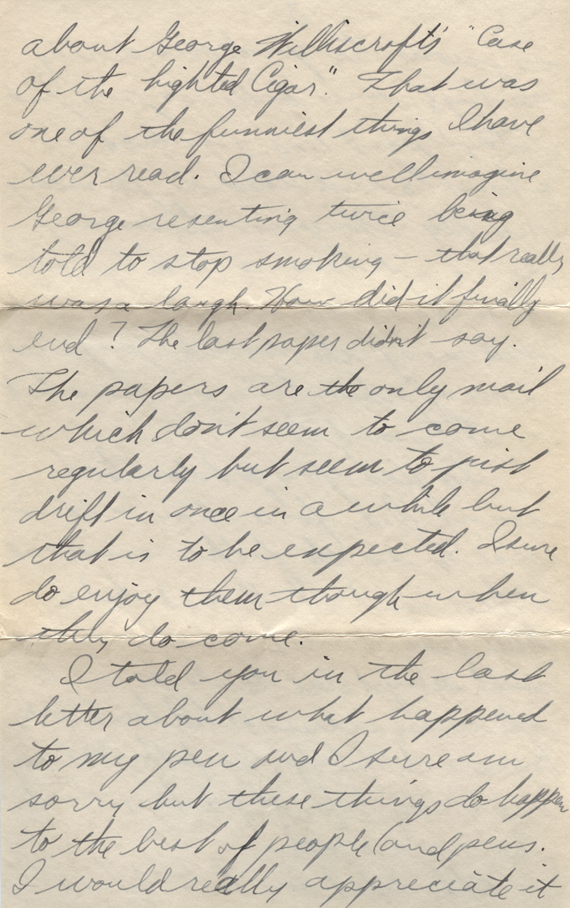 about George Williscroft's "Case
of the lighted Cigar." That was
one of the funniest things I have
ever read. I can well imagine
George resenting twice being
told to stop smoking – that really
was a laugh. How did it finally
end? The last paper didn't say.
The papers are the only mail
which don't seem to come
regularly but seem to just
drift in once in a while but
that is to be expected. I sure
do enjoy them though when
they do come.
I told you in the last
letter about what happened
to my pen and I sure am
sorry but these things do happen
to the best of people (and pens.
I would really appreciate it